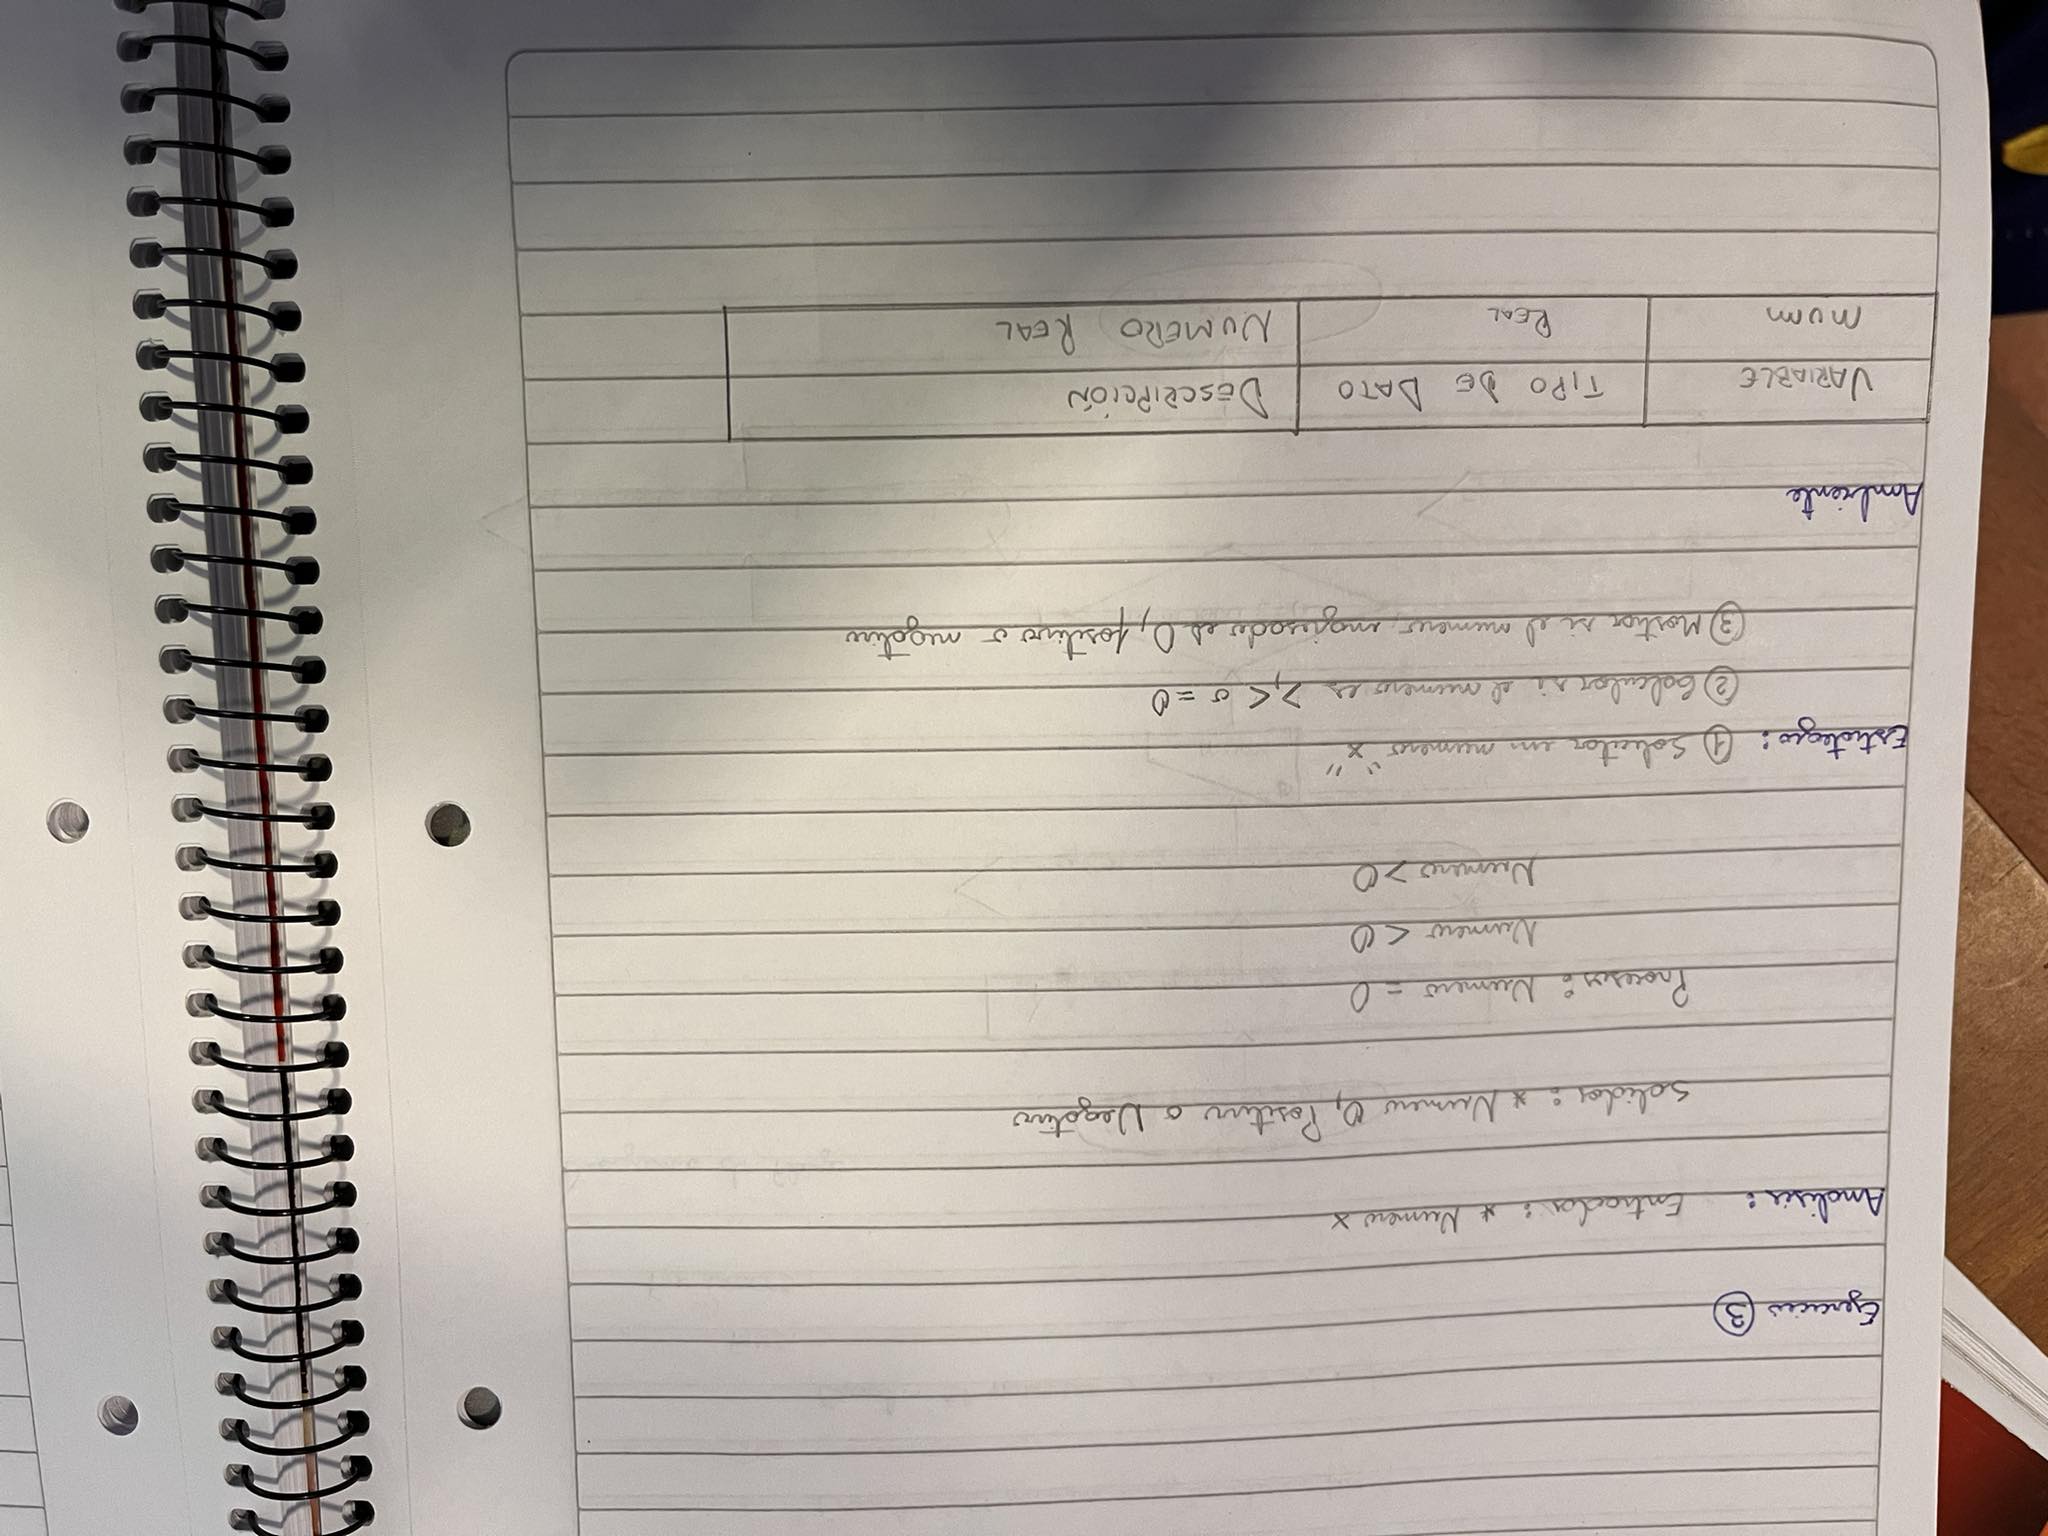 Ejercicio 3
Analisis: Entradas: * Numero x
Salidas: * Numero 0, Positivo o Negativo
Proceso: Numero = 0
Numero < 0
Numero > 0
Estrategia: 1 Solicitar un numero "x"
2 Calcular si el numero es >, < o = 0
3 Mostrar si el numero ingresado es 0, positivo o negativo
Ambiente
VARIABLE TIPO DE DATO DESCRIPCIÓN
num REAL NUMERO REAL